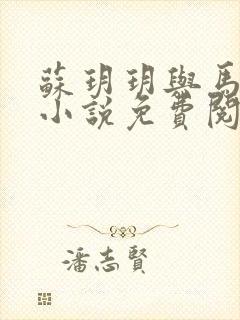 蘇玥玥與馬
小說免費閱
潘志賢